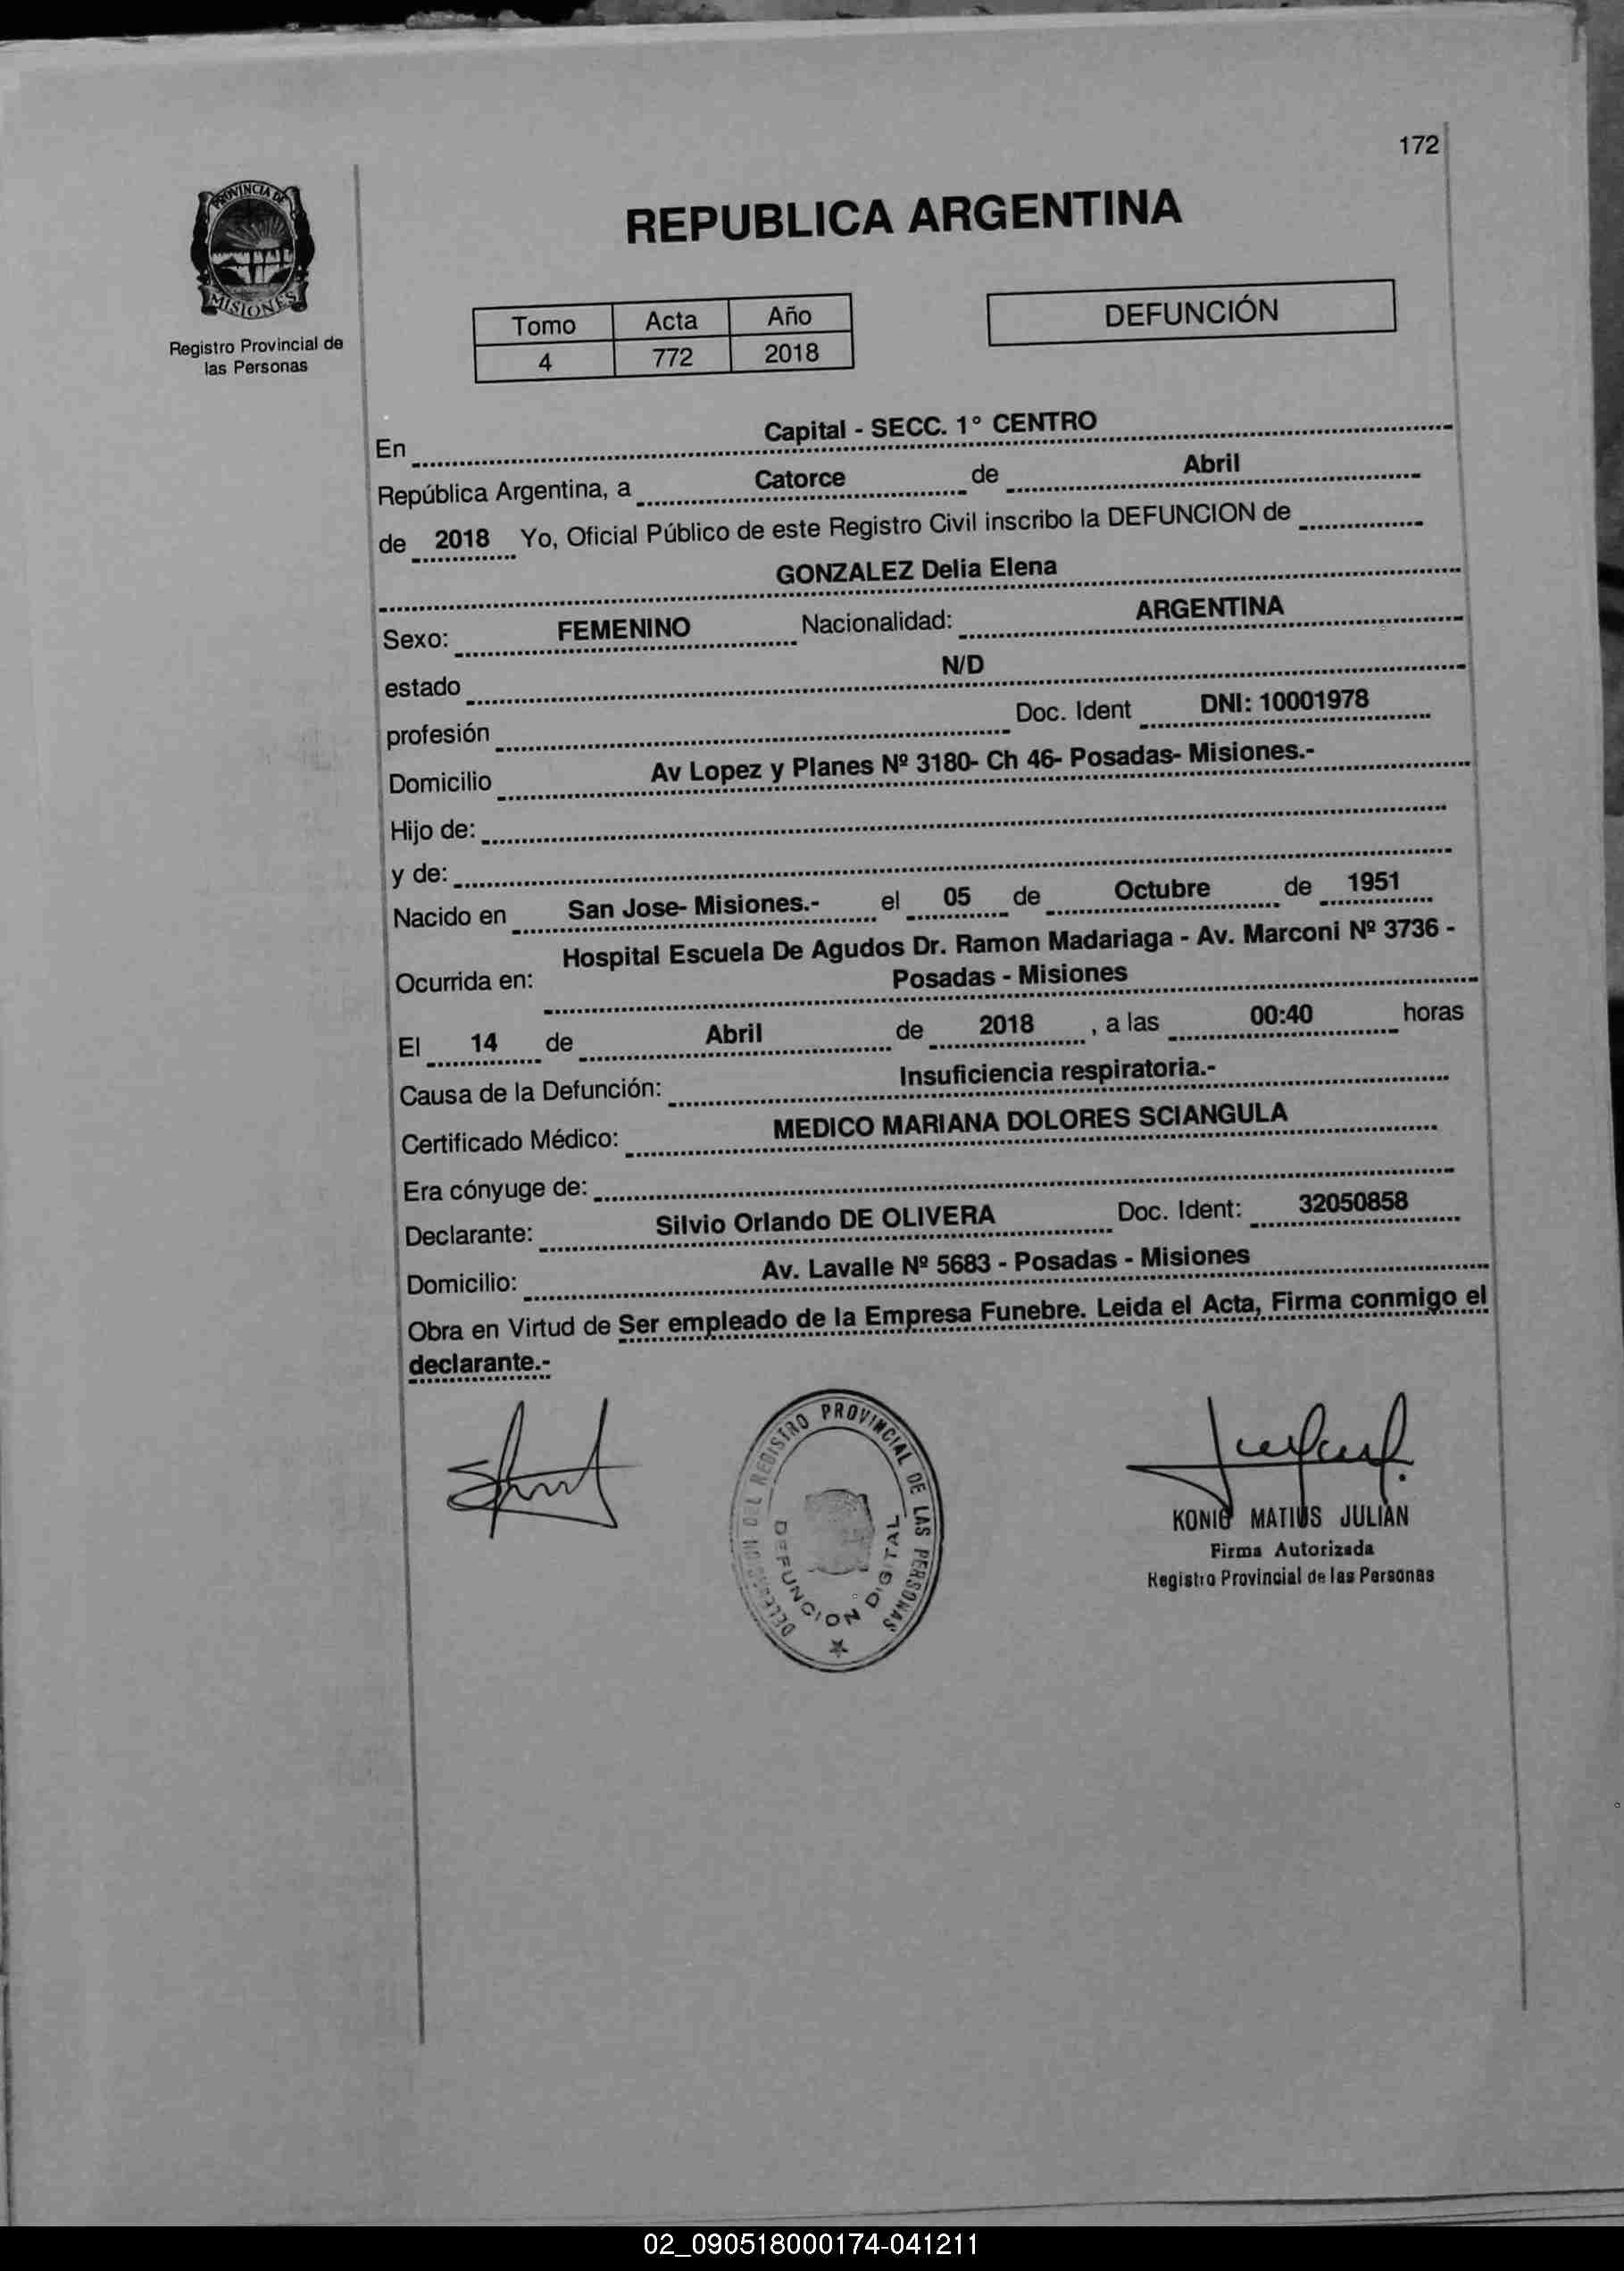 172
PROVINCIA DE
MISIONES
Registro Provincial de
las Personas
REPUBLICA ARGENTINA
Tomo Acta Año
4 772 2018
DEFUNCIÓN
En Capital - SECC. 1° CENTRO
República Argentina, a Catorce de Abril
de 2018 Yo, Oficial Público de este Registro Civil inscribo la DEFUNCION de
GONZALEZ Delia Elena
Sexo: FEMENINO Nacionalidad: ARGENTINA
estado N/D
profesión Doc. Ident DNI: 10001978
Domicilio Av Lopez y Planes Nº 3180- Ch 46- Posadas- Misiones.-
Hijo de:
y de:
Nacido en San Jose- Misiones.- el 05 de Octubre de 1951
Hospital Escuela De Agudos Dr. Ramon Madariaga - Av. Marconi Nº 3736 -
Ocurrida en: Posadas - Misiones
El 14 de Abril de 2018 , a las 00:40 horas
Causa de la Defunción: Insuficiencia respiratoria.-
Certificado Médico: MEDICO MARIANA DOLORES SCIANGULA
Era cónyuge de:
Declarante: Silvio Orlando DE OLIVERA Doc. Ident: 32050858
Domicilio: Av. Lavalle Nº 5683 - Posadas - Misiones
Obra en Virtud de Ser empleado de la Empresa Funebre. Leida el Acta, Firma conmigo el
declarante.-
DEL REGISTRO PROVINCIAL DE LAS PERSONAS
DEFUNCION DIGITAL
KONIG MATIAS JULIAN
Firma Autorizada
Registro Provincial de las Personas
02_090518000174-041211